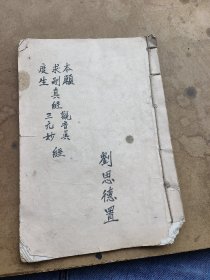 本願
求耐真經觀音真
度生 三元妙 經
劉思德置